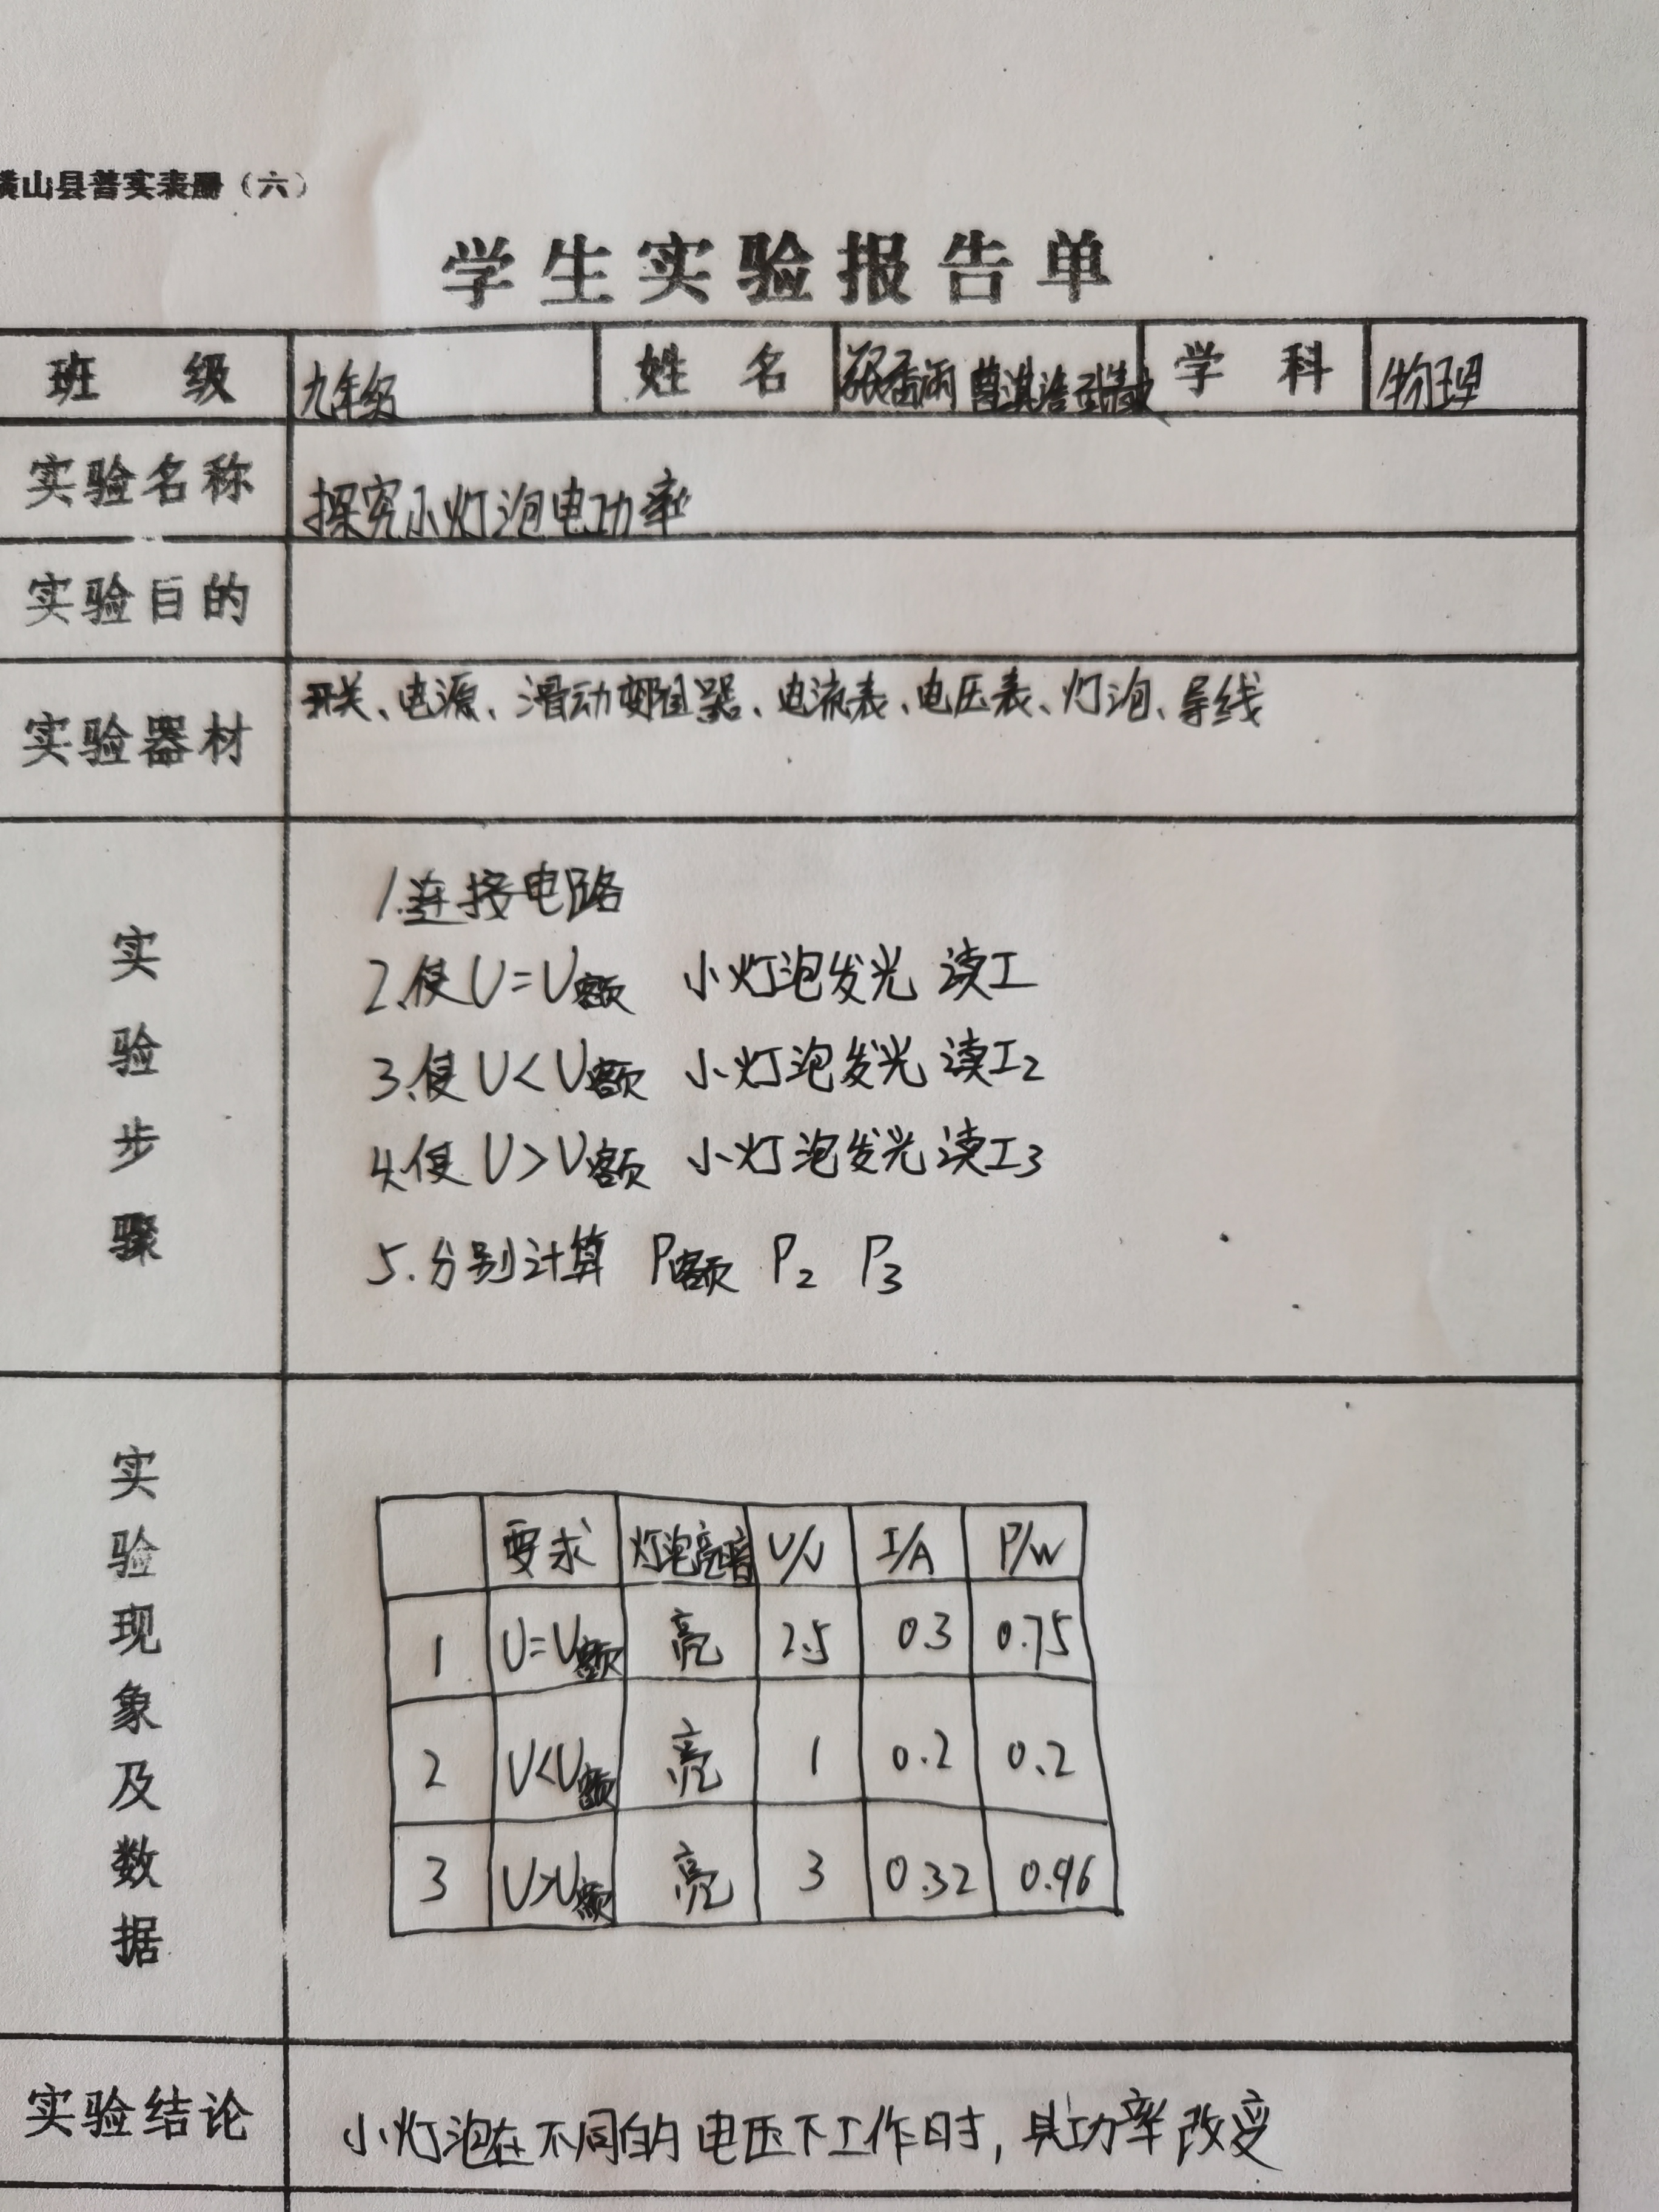 横山县普实表册（六）
学生实验报告单
班 级 九年级 姓 名 张香雨 曹淇浩 学 科 物理
实验名称 探究小灯泡电功率
实验目的
实验器材 开关、电源、滑动变阻器、电流表、电压表、灯泡、导线
实验步骤
1.连接电路
2.使U=U额 小灯泡发光 读I
3.使U<U额 小灯泡发光 读I2
4.使U>U额 小灯泡发光 读I3
5.分别计算 P额 P2 P3
实验现象及数据
要求 灯泡亮暗 U/V I/A P/W
1 U=U额 亮 2.5 0.3 0.75
2 U<U额 亮 1 0.2 0.2
3 U>U额 亮 3 0.32 0.96
实验结论 小灯泡在不同的电压下工作时，其功率改变